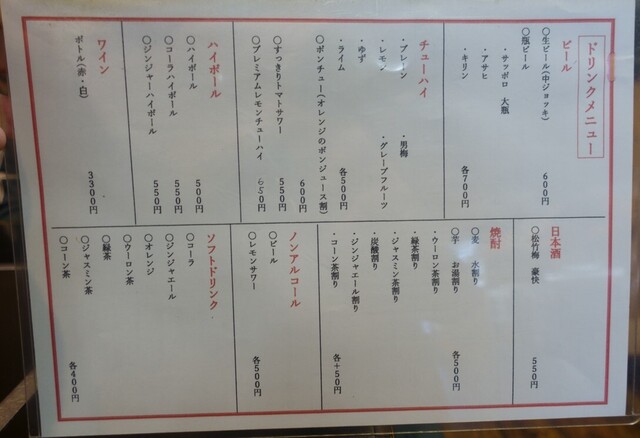 ドリンクメニュー
ビール
〇生ビール(中ジョッキ) 600円
〇瓶ビール
・サッポロ 大瓶
・アサヒ
・キリン 各700円
チューハイ
・プレーン ・男梅
・レモン ・グレープフルーツ
・ゆず
・ライム 各500円
〇ポンチュー(オレンジのポンジュース割) 600円
〇すっきりトマトサワー 550円
〇プレミアムレモンチューハイ 650円
ハイボール
〇ハイボール 500円
〇コーラハイボール 550円
〇ジンジャーハイボール 550円
ワイン
ボトル(赤・白) 3300円
日本酒
〇松竹梅 豪快 550円
焼酎
〇麦 水割り
〇芋 お湯割り 各500円
・ウーロン茶割り
・緑茶割り
・ジャスミン茶割り
・炭酸割り
・ジンジャエール割り
・コーン茶割り 各+50円
ノンアルコール
〇ビール
〇レモンサワー 各500円
ソフトドリンク
〇コーラ
〇ジンジャエール
〇オレンジ
〇ウーロン茶
〇緑茶
〇ジャスミン茶
〇コーン茶 各400円